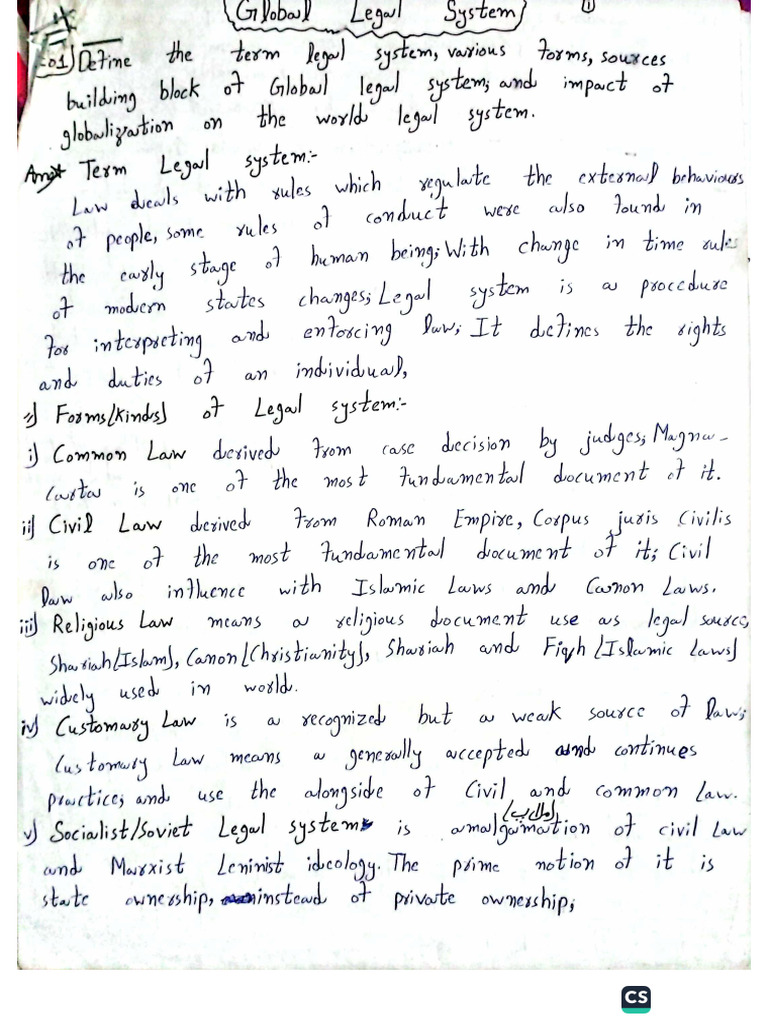 Global Legal System
①
Q01) Define the term legal system, various forms, sources
building block of Global legal system; and impact of
globalization on the world legal system.
Ans* Term Legal system:-
Law deals with rules which regulate the external behaviours
of people, some rules of conduct were also found in
the early stage of human being; With change in time rules
of modern states changes; Legal system is a procedure
for interpreting and enforcing law; It defines the rights
and duties of an individual,
=> Forms[Kinds] of Legal system:-
i) Common Law derived from case decision by judges; Magna-
Carta is one of the most fundamental document of it.
ii) Civil Law derived from Roman Empire, Corpus juris Civilis
is one of the most fundamental document of it; Civil
Law also influence with Islamic Laws and Canon Laws.
iii) Religious Law means a religious document use as legal source,
Shariah[Islam], Canon[Christianity], Shariah and Fiqh [Islamic Laws]
widely used in world.
iv) Customary Law is a recognized but a weak source of law;
Customary Law means a generally accepted and continues
practice; and use the alongside of Civil and common Law.
v) Socialist/Soviet Legal system is amalgamation of civil Law
and Marxist Leninist ideology. The prime notion of it is
state ownership, instead of private ownership;
CS